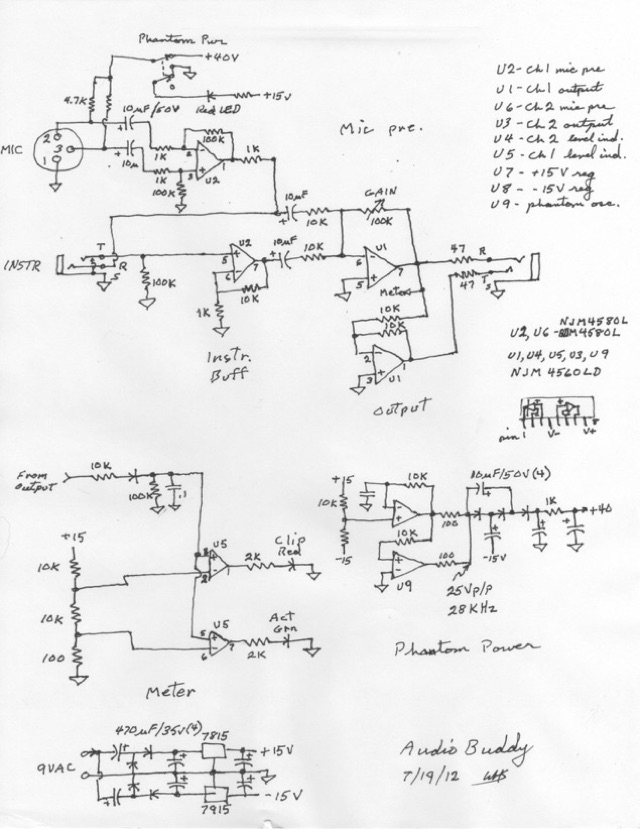 Phantom Pwr
+40V
+15V
Red LED
4.7K
10µF/50V
100K
MIC
2
3
1
10µ
1K
2
1
1K
1K
3
U2
100K
Mic pre.
U2 - Ch1 mic pre
U1 - Ch1 output
U6 - Ch2 mic pre
U3 - Ch2 output
U4 - Ch 2 level ind.
U5 - Ch1 level ind.
U7 - +15V reg
U8 - -15V reg
U9 - phantom osc.
10µF
10K
GAIN
100K
INSTR
T
R
S
100K
U2
5
6
7
10µF
10K
10K
1K
Instr.
Buff
U1
6
5
7
Meter
10K
10K
2
3
1
U1
Output
47
R
47
T
S
NJM4580L
U2, U6 - M4580L
U1, U4, U5, U3, U9
NJM 4560LD
pin 1
V-
V+
From
output
10K
100K
.1
+15
10K
10K
100
3
2
U5
1
2K
Clip
Red
5
6
U5
7
2K
Act
Grn
Meter
+15
10K
-15
10K
10K
100
100
U9
10µF/50V(4)
-15V
1K
+40
25Vp/p
28KHz
Phantom Power
470µF/35V(4)
7815
+15V
9VAC
7915
-15V
Audio Buddy
7/19/12